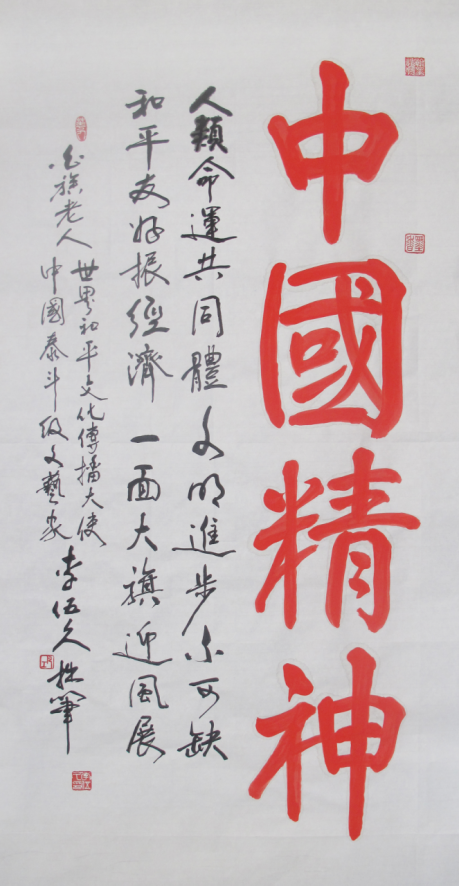 中國精神
人類命運共同體文明進步不可缺
和平友好振經濟一面大旗迎風展
世界和平文化傳播大使
中國泰斗级文藝家
老人
李伍久拙筆